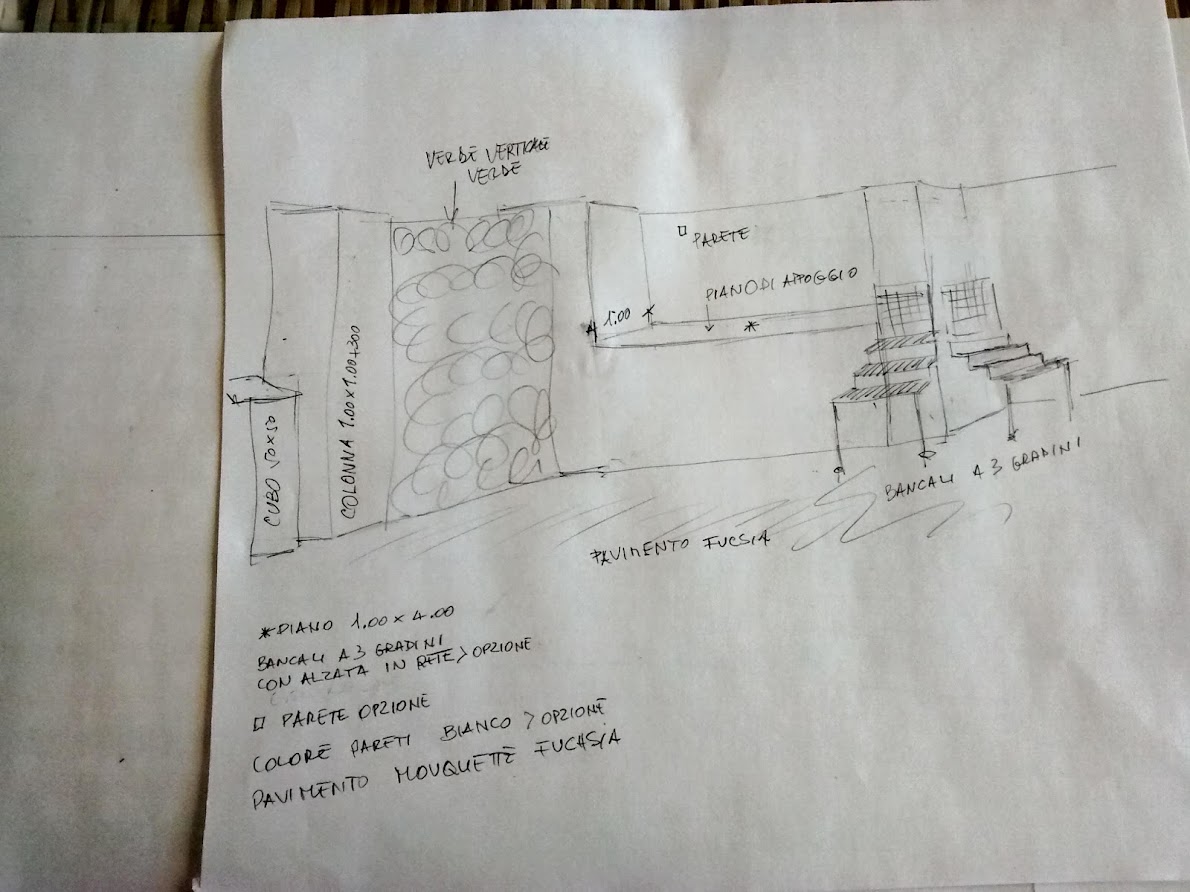 VERDE VERTICALE
VERDE
□ PARETE
PIANO DI APPOGGIO
1.00
*
*
CUBO 50x50
COLONNA 1.00x1.00x300
BANCALI A 3 GRADINI
PAVIMENTO FUCSIA
*PIANO 1.00 x 4.00
BANCALI A 3 GRADINI
CON ALZATA IN RETE > OPZIONE
□ PARETE OPZIONE
COLORE PARETI BIANCO > OPZIONE
PAVIMENTO MOUQUETTE FUCHSIA